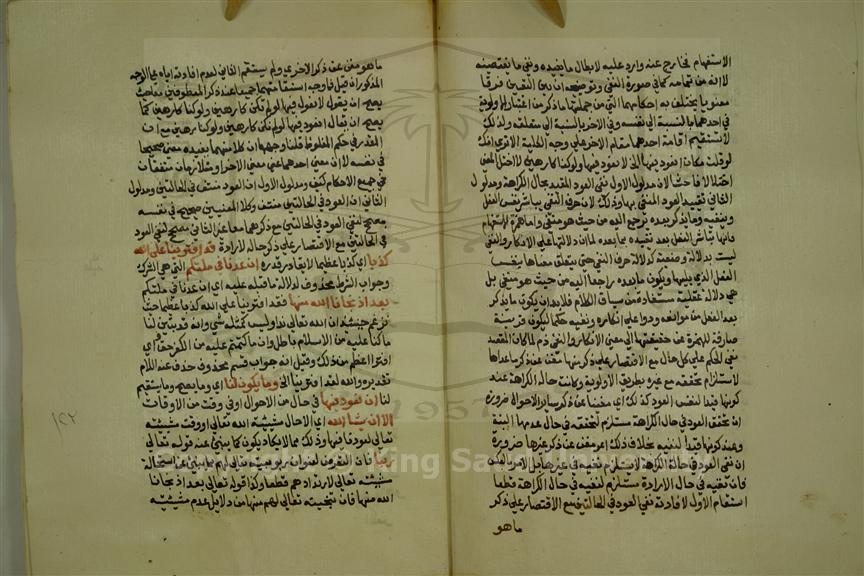 الاستفهام بخارج عنه وارد عليه لابطال ما يفيده ونفي ما يقتضيه
لا انه من تمامه كما في صورة النفي وتوضيحه ان بين النفيين فرقا
معنويا يختلف به احكامهما التي من جملتها ما ذكر من اعتبار الاولوية
في احدهما بالنسبة الى نفسه وفي الاخر بالنسبة الى متعلقه ولذلك
لا تستقيم اقامة احدهما مقام الاخر على وجه الكلية الا ترى انك
لو قلت مكان انعود فيها الخ لا نعود فيها ولو كنا كارهين لاختل المعنى
اختلالا فاحشا لان مدلول الاول نفي العود المقيد بحال الكراهة ومدلول
الثاني تقييد العود المنفي بها وذلك لان حرف النفي يباشر نفس الفعل
وينفيه وما يذكر بعده يرجع اليه من حيث هو منفي واما همزة الاستفهام
فانها تباشر الفعل بعد تقييده بما بعده لما ان دلالتها على الانكار والنفي
ليست بدلالة وضعية كدلالة حرف النفي حتى يتعلق معناها بنفس
الفعل الذي يليها ويكون ما بعده راجعا اليه من حيث هو منفي بل
هي دلالة عقلية مستفادة من سياق الكلام فلا بد ان يكون ما يذكر
بعد الفعل من موانعه ودواعي انكاره ونفيه حكما ليكون قرينة
صارفة للهمزة عن حقيقتها الى معنى الانكار والنفي ثم لما كان المقصد
نفي الحكم على كل حال مع الاقتصار على ذكر بعضها مغن عن ذكر ما عداها
لاستلزام تحققه مع غيره بطريق الاولوية وكانت حالة الكراهة عند
كونها قيدا لنفس العود كذلك اي مغنيا عن ذكر سائر الاحوال ضرورة
ان تحقق العود في حال الكراهة مستلزم لتحققه في حال عدمها البتة
وعند كونها قيدا لنفيه بخلاف ذلك اي غير مغن عن ذكر غيرها ضرورة
ان نفي العود في حالة الكراهة لا يستلزم نفيه في غيرها بل الامر بالعكس
فان نفيه في حال الارادة مستلزم لنفيه في حال الكراهة قطعا
استقام الاول لافادته نفي العود في الحالتين مع الاقتصار على ذكر
ما هو
ما هو مغن عن ذكر الاخرى ولم يستقم الثاني لعدم افادته اياه على الوجه
المذكور ان قيل فما وجه استقامتهما جميعا عند ذكر المعطوفين معا حيث
يصح ان يقول لا نعود فيها لو لم نكن كارهين ولو كنا كارهين كما
يصح ان يقال انعود فيها لو لم نكن كارهين ولو كنا كارهين مع ان
المقدر في حكم الملفوظ قلنا وجهها ان كلا منهما يفيد معنى صحيحا
في نفسه لا ان معنى احدهما عين معنى الاخر او متلازمان متفقان
في جميع الاحكام كيف ومدلول الاول ان العود منتف في الحالتين ومدلول
الثاني ان العود في الحالتين منتف وكلا المعنيين صحيح في نفسه
مصحح لنفي العود في الحالتين مع ذكرهما معا غير ان الثاني مصحح لنفي العود
في الحالتين مع الاقتصار على ذكر حالة الارادة قد افترينا على الله
كذبا اي كذبا عظيما لا يقادر قدره ان عدنا في ملتكم التي هي الشرك
وجواب الشرط محذوف لدلالة ما قبله عليه اي ان عدنا في ملتكم
بعد اذ نجانا الله منها فقد افترينا على الله كذبا عظيما حيث
نزعم حينئذ ان الله تعالى ندا وليس كمثله شيء وانه قد تبين لنا
ما كنا عليه من الاسلام باطل وان ما كنتم عليه من الكفر حق واي
افتراء اعظم من ذلك وقيل انه جواب قسم محذوف حذف عنه اللام
تقديره والله لقد افترينا الخ وما يكون لنا اي وما يصح وما يستقيم
لنا ان نعود فيها في حال من الاحوال او في وقت من الاوقات
الا ان يشاء الله اي الا حال مشيئة الله تعالى او وقت مشيئته
تعالى لعودنا فيها وذلك مما لا يكاد يكون كما ينبئ عنه قوله تعالى
ربنا فان التعرض لعنوان ربوبيته تعالى لهم مما ينبئ عن استحالة
مشيئته تعالى لارتدادهم قطعا وكذا قوله تعالى بعد اذ نجانا
الله منها فان تنجيته تعالى لهم منها من دلايل عدم مشيئته
١٢٢
1957
King Saud University